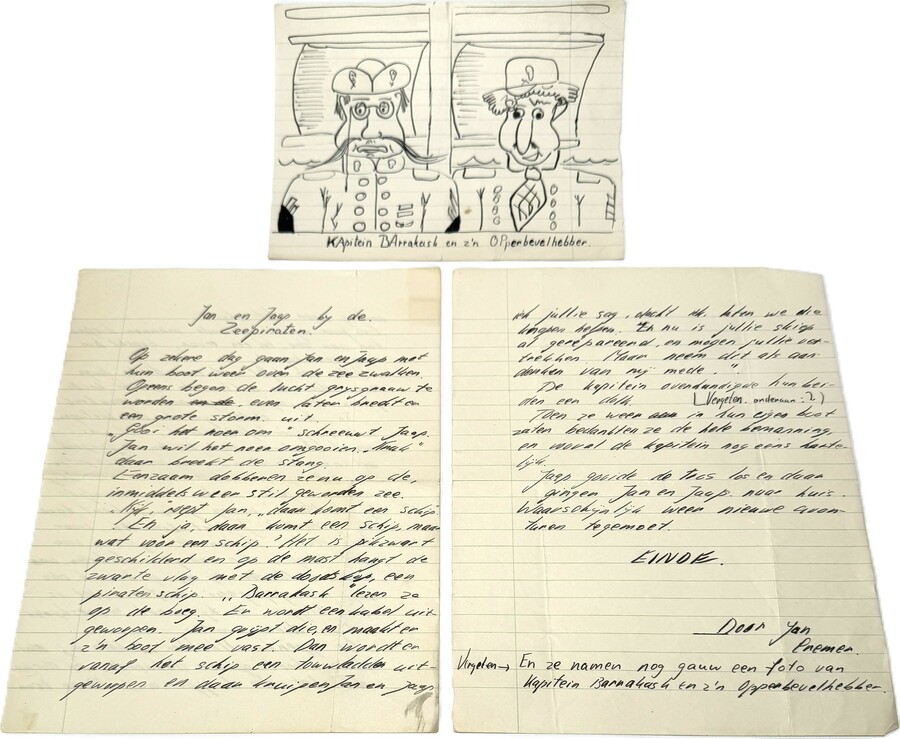 KApitein BArrakash en z'n OPperbevelhebber.
Jan en Jaap by de.
Zeepiraten.
Op zekere dag gaan Jan en Jaap met
hun boot weer over de zee zwalken.
Opeens begon de lucht grysgrauw te
worden en de, even later breekt er
een grote storm uit.
„Gooi het roer om" schreeuwt Jaap.
Jan wil het roer omgooien. „Krak"
daar breekt de stang.
Eenzaam dobberen ze nu op de,
inmiddels weer stil geworden zee.
„Kyk", roept Jan, „daar komt een schip"
En ja, daar komt een schip maar
wat voor een schip? Het is pikzwart
geschilderd en op de mast hangt de
zwarte vlag met de doodskop, een
piratenschip. „Barrakash" lezen ze
op de boeg. Er wordt een kabel uit-
geworpen. Jan grijpt die, en maakt er
z'n boot mee vast. Dan wordt er
vanaf het schip een touwladder uit-
geworpen en daar kruipen Jan en Jaap
ik jullie zag, dacht ik, laten we die
helpen. En nu is jullie schip
al gerepareerd, en mogen jullie ver-
trekken. Maar neem dit als aan-
denken van mij mede."
De kapitein overhandigde hun bei-
den een dolk. (Vergeten, onderaan: 2)
Toen ze weer in hun eigen boot
zaten bedankten ze de hele bemanning
en vooral de kapitein nog eens harte-
lijk.
Jaap gooide de tros los en daar
gingen Jan en Jaap. naar huis.
Waarschijnlijk weer nieuwe avon-
turen tegemoet.
EINDE.
Door Jan
Enemen.
Vergeten → En ze namen nog gauw een foto van
Kapitein Barrakash en z'n Opperbevelhebber.